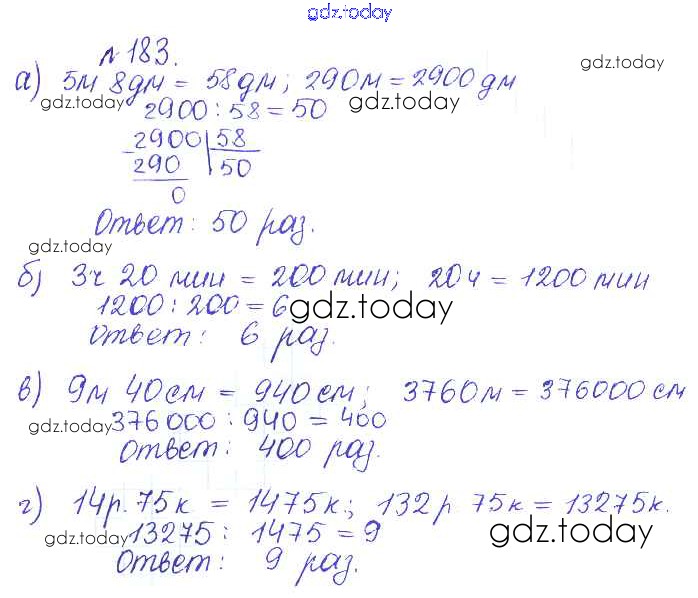 gdz.today
№ 183.
а) 5м 8дм = 58дм; 290м = 2900 дм
gdz.today
gdz.today
2900 : 58 = 50 gdz.today
2900 58
290 50
0
Ответ: 50 раз.
gdz.today
б) 3ч 20 мин = 200 мин; 20ч = 1200 мин
1200 : 200 = 6 gdz.today
Ответ: 6 раз.
в) 9м 40см = 940 см; 3760м = 376000 см
gdz.today 376 000 : 940 = 400
Ответ: 400 раз.
г) 14р. 75к = 1475к; 132р 75к = 13275к.
gdz.today 13275 : 1475 = 9 gdz.today
Ответ: 9 раз.